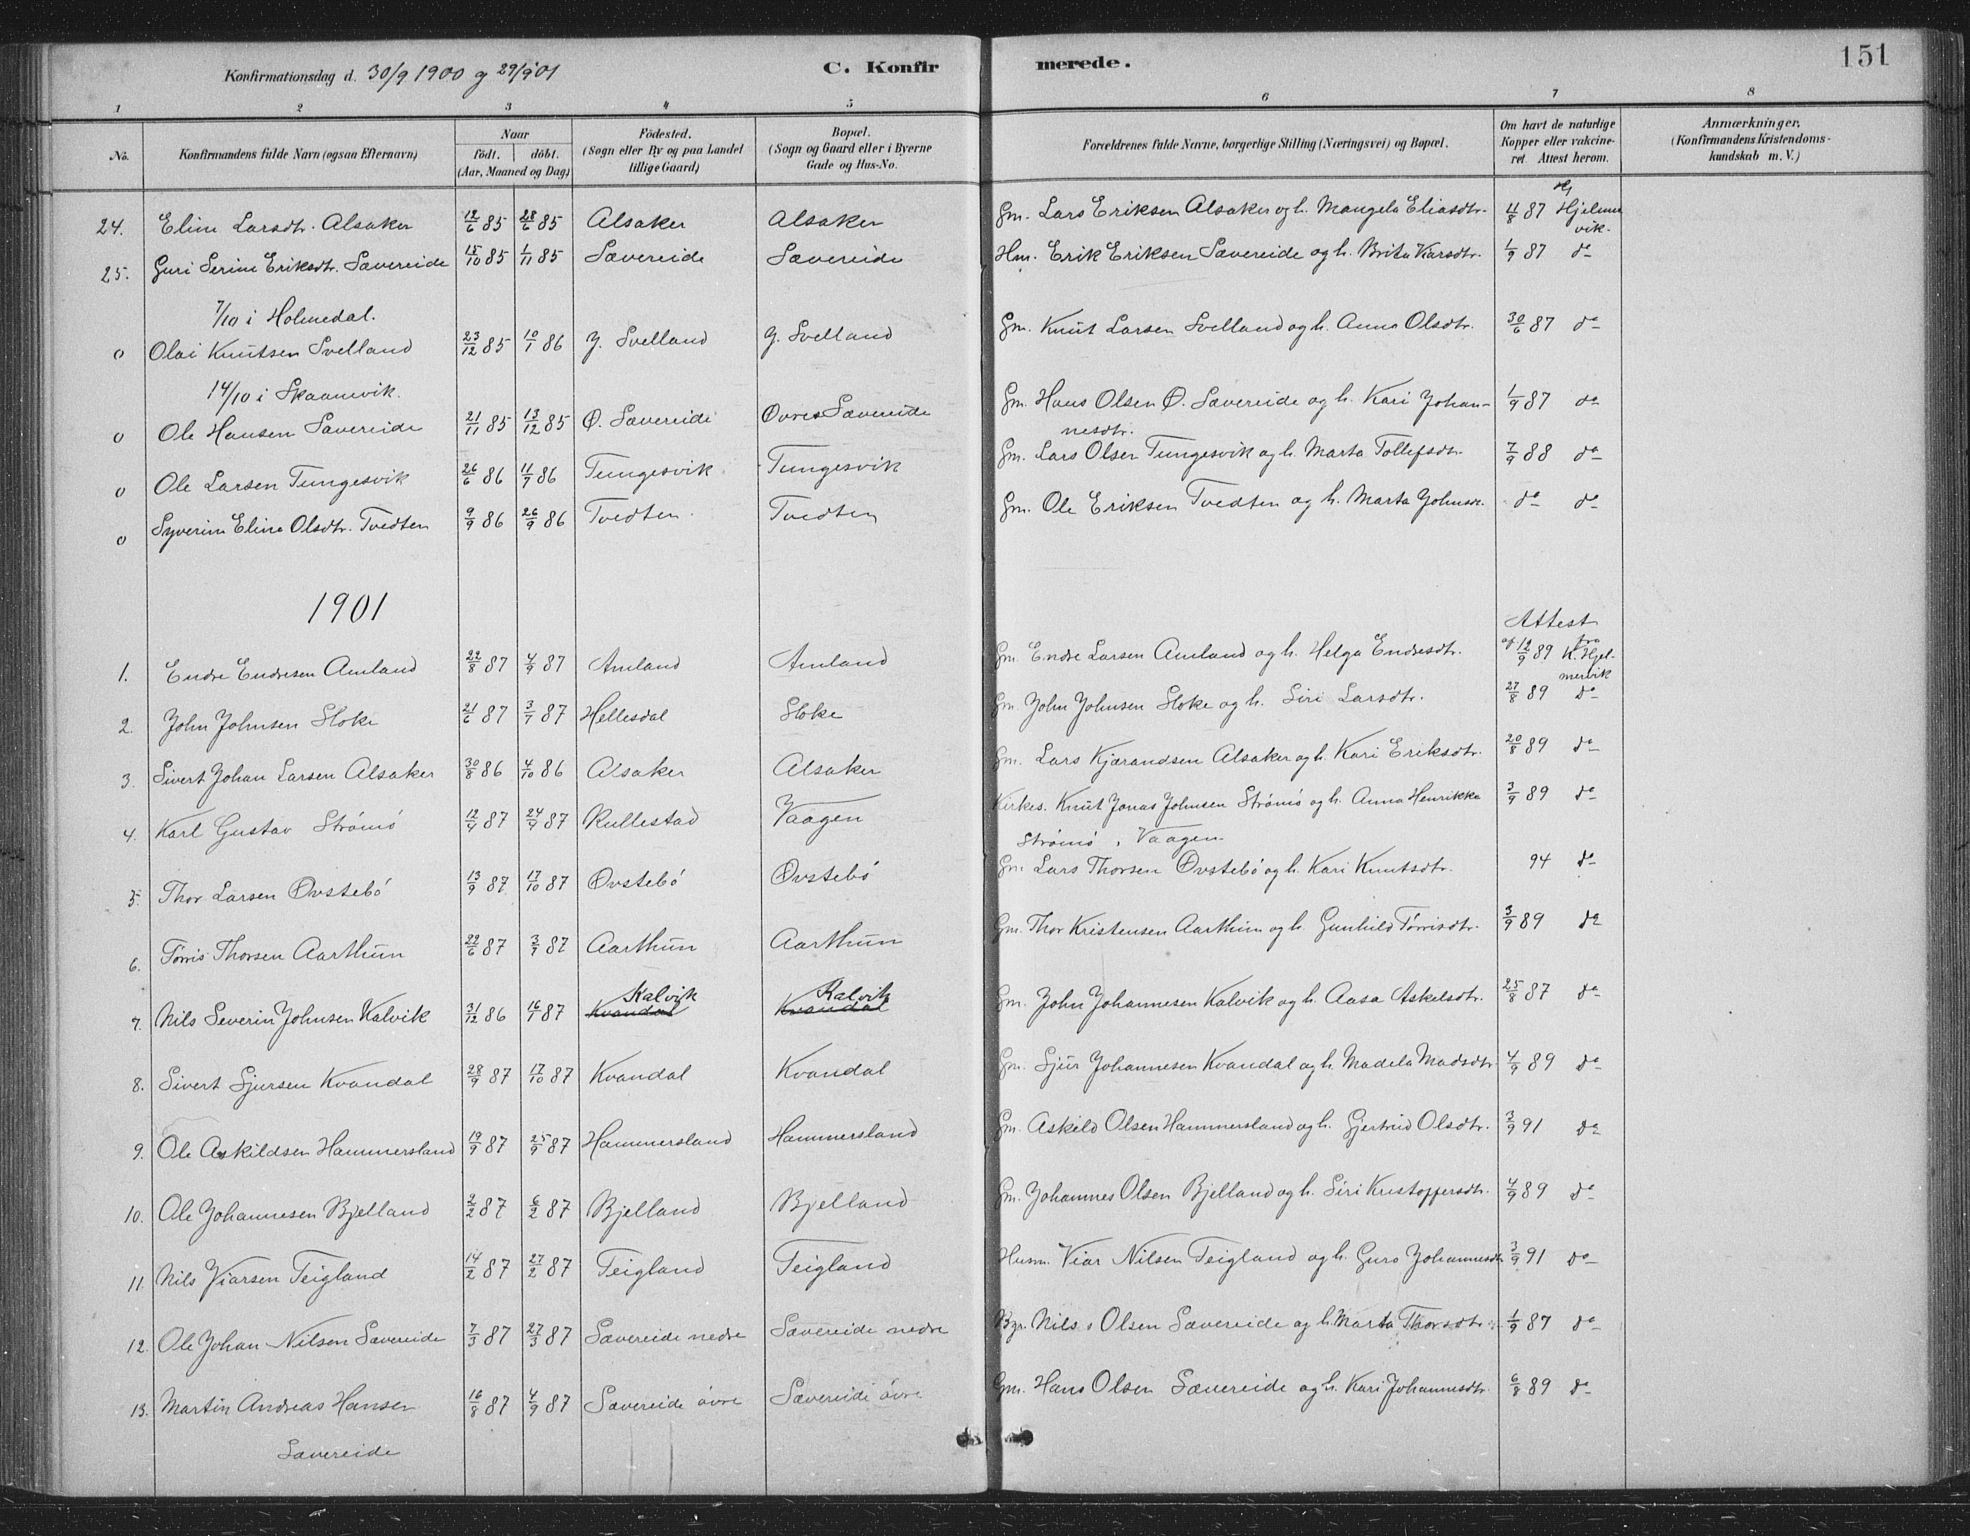 151
Konfirmationsdag d. 30/9 1900 og 29/9 01 C. Konfirmerede.
1 2 3 4 5 6 7 8
No. Konfirmandens fulde Navn (ogsaa Efternavn) Naar födt. döbt. (Aar, Maaned og Dag) Födested. (Sogn eller By og paa Landet tillige Gaard) Bopæl. (Sogn og Gaard eller i Byerne Gade og Hus-No. Forældrenes fulde Navne, borgerlige Stilling (Næringsvei) og Bopæl. Om havt de naturlige Kopper eller vakcineret Attest herom. Anmærkninger, (Konfirmandens Kristendomskundskab m. V.)
24. Eline Larsdtr. Alsaker 12/6 85 28/6 85 Alsaker Alsaker Gm. Lars Eriksen Alsaker og h. Mangela Eliasdtr. 11/8 87 Hjelmervik.
25. Guri Serine Eriksdtr. Sævereide 15/10 85 1/11 85 Sævereide Sævereide Hm. Erik Eriksen Sævereide og h. Brita Viarsdtr. 1/9 87 do
7/10 i Holmedal.
o Olai Knutsen Svelland 23/12 85 10/1 86 Y. Svelland Y. Svelland Gm. Knut Larsen Svelland og h. Anna Olsdtr. 30/6 87 do
14/10 i Skaanevik.
o Ole Hansen Sævereide 21/11 85 13/12 85 Ø. Sævereide Øvre Sævereide Gm. Hans Olsen Ø. Sævereide og h. Kari Johannesdtr. 1/9 87 do
o Ole Larsen Tungesvik 26/6 86 11/7 86 Tungesvik Tungesvik Gm. Lars Olsen Tungesvik og h. Marta Tollefsdtr. 7/9 88 do
o Syverine Eline Olsdtr. Tvedten 9/9 86 26/9 86 Tvedten Tvedten Gm. Ole Eriksen Tvedten og h. Marta Johnsdr. do do
1901
Attest
1. Endre Endresen Amland 22/8 87 4/9 87 Amland Amland Gm. Endre Larsen Amland og h. Helga Endresdtr. af 12/9 89 fra K. Hjelmervik
2. John Johnsen Sloke 21/6 87 3/7 87 Hellesdal Sloke Gm. John Johnsen Sloke og h. Siri Larsdtr. 27/8 89 do
3. Sivert Johan Larsen Alsaker 30/8 86 4/10 86 Alsaker Alsaker Gm. Lars Kjærandsen Alsaker og h. Kari Eriksdtr. 20/8 89 do
4. Karl Gustav Strömö 12/4 87 24/4 87 Rullestad Vaagen Kirkes. Knut Jonas Johnsen Strömö og h. Anna Henrikka Strömö, Vaagen 3/9 89 do
5. Thor Larsen Øvstebö 13/9 87 17/10 87 Øvstebö Øvstebö Gm. Lars Thorsen Øvstebö og h. Kari Knutsdtr. 94 do
6. Törris Thorsen Aarthun 22/6 87 3/7 87 Aarthun Aarthun Gm. Thor Kristensen Aarthun og h. Gunhild Törrisdtr. 3/9 89 do
7. Nils Severin Johnsen Kalvik 31/12 86 16/1 87 Kvandal Kalvik Kvandal Kalvik Gm. John Johannesen Kalvik og h. Aasa Askelsdtr. 25/8 87 do
8. Sivert Sjursen Kvandal 28/9 87 17/10 87 Kvandal Kvandal Gm. Sjur Johannesen Kvandal og h. Madela Madsdtr. 4/9 89 do
9. Ole Askildsen Hammersland 19/9 87 25/9 87 Hammersland Hammersland Gm. Askild Olsen Hammersland og h. Gjertrud Olsdtr. 3/9 91 do
10. Ole Johannesen Bjelland 2/2 87 6/2 87 Bjelland Bjelland Gm. Johannes Olsen Bjelland og h. Siri Kristoffersdtr. 4/9 89 do
11. Nils Viarsen Teigland 14/2 87 27/2 87 Teigland Teigland Husm. Viar Nilsen Teigland og h. Guro Johannesdtr 3/9 91 do
12. Ole Johan Nilsen Sævereide 7/3 87 27/3 87 Sævereide nedre Sævereide nedre Bgr. Nils Olsen Sævereide og h. Marta Thorsdtr. 1/9 87 do
13. Martin Andreas Hansen Sævereide 16/8 87 4/9 87 Sævereide övre Sævereide övre Gm. Hans Olsen Sævereide og h. Kari Johannesdtr. 6/8 89 do